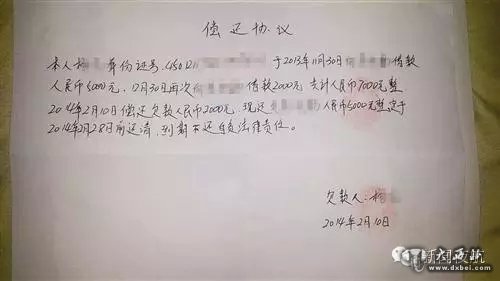 偿还协议
本人 身份证号:45012 于2013年11月30日 借款
人民币5000元，12月30日再次 借款2000元 共计人民币7000元整
2014年2月10日偿还欠款人民币2000元，现还 人民币5000元整定于
2014年2月28日前还清，到期不还自负法律责任。
欠款人：
2014年2月10日
www.dxbei.com